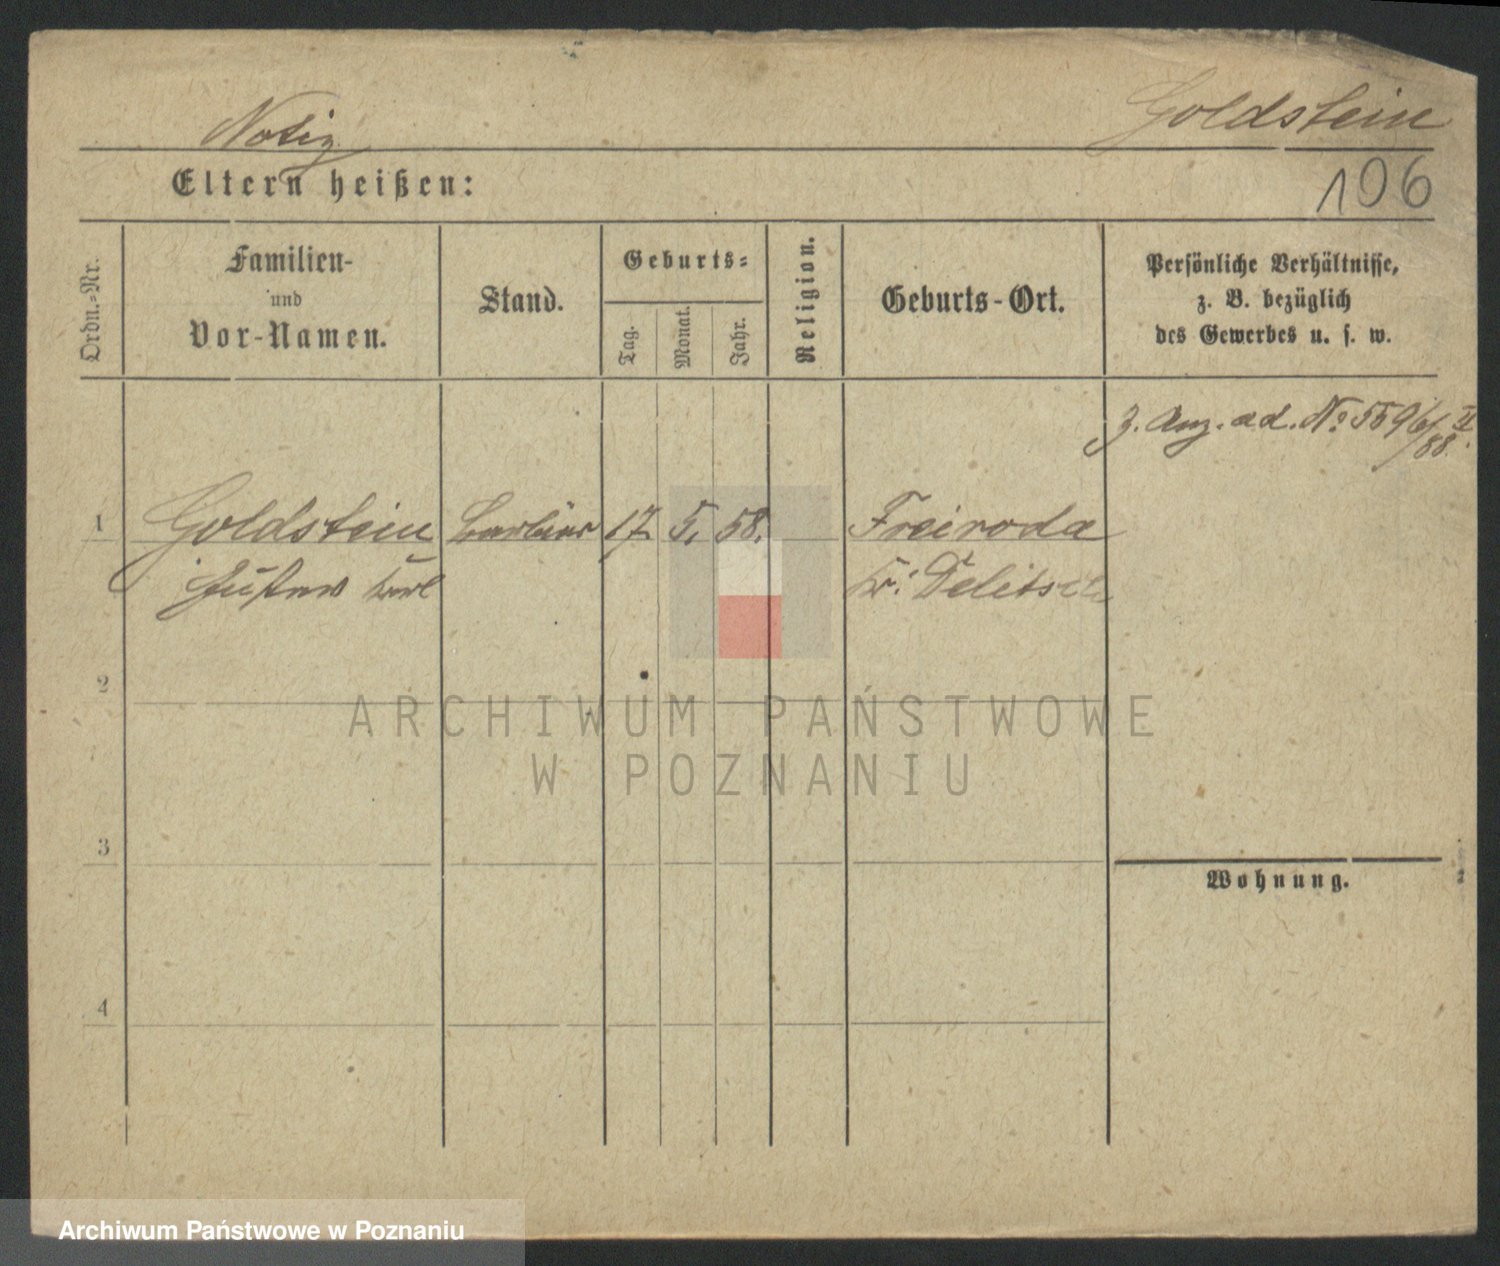 Notiz
Goldstein
Eltern heißen:
106
Ordn.-Nr.
Familien-
und
Vor-Namen.
Stand.
Geburts-
Tag.
Monat.
Jahr.
Religion.
Geburts-Ort.
Persönliche Verhältnisse,
z. B. bezüglich
des Gewerbes u. s. w.
z. Anz. ad. No 5596/88 II.
1 Goldstein Barbier 17. 5. 58. Freiroda
Gustav Karl Kr. Delitsch
2
ARCHIWUM PAŃSTWOWE
W POZNANIU
3
Wohnung.
4
Archiwum Państwowe w Poznaniu